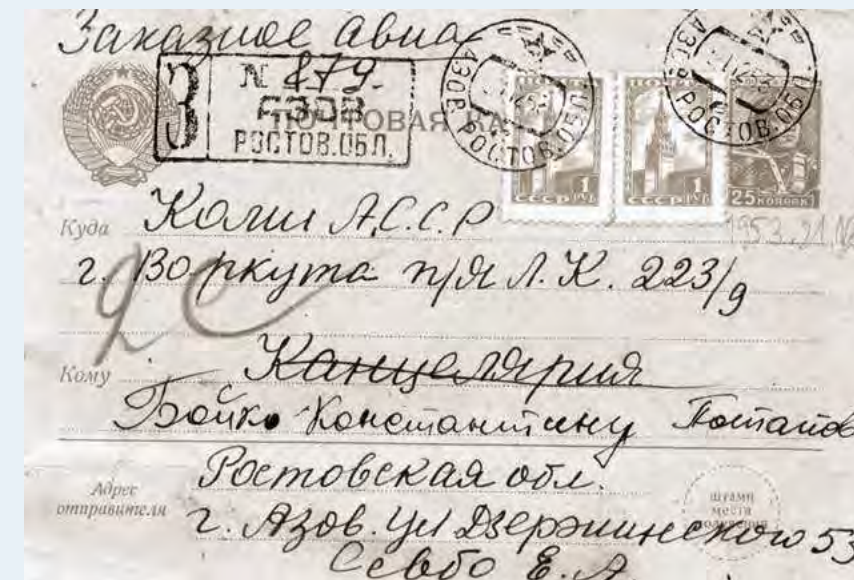 Заказное авиа
З N 879.
АЗОВ
РОСТОВ.ОБЛ.
ПОЧТОВАЯ КА
АЗОВ РОСТОВ.ОБЛ
АЗОВ РОСТОВ.ОБЛ
ПОЧТА
1 РУБ
СССР
ПОЧТА
1 РУБ
СССР
25 КОПЕЕК
1953.21.
Куда Коми А.С.С.Р
г. Воркута п/я Л.К. 223/9
Кому Канцелярия
Бойко Константину
Адрес отправителя
Ростовская обл.
г. Азов. ул Дзержинского 53
Е. А
штамп
места